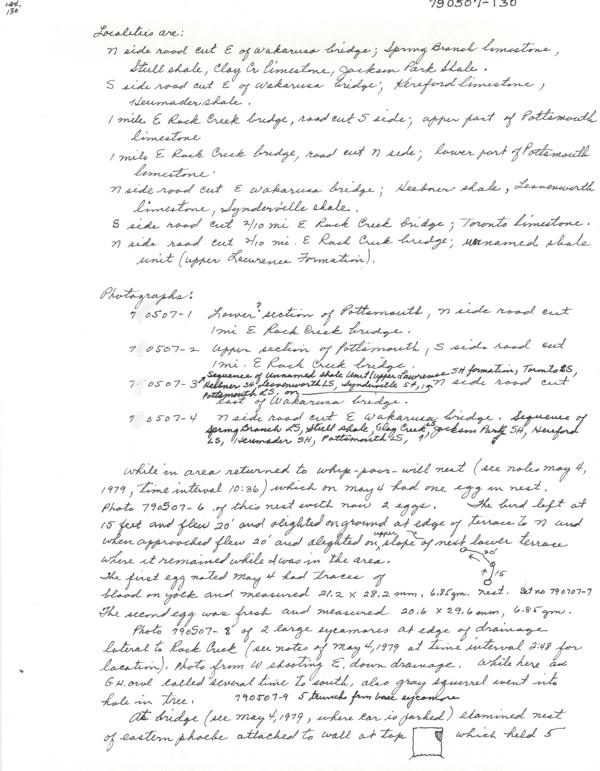 124,
130
790507-130
Localities are:
N side road cut E of Wakarusa bridge; Spring Branch limestone,
Stull shale, Clay Cr limestone, Jackson Park Shale.
S side road cut E of Wakarusa bridge; Kereford limestone,
Heumader shale.
1 mile E Rock Creek bridge, road cut S side; upper part of Pottsmouth
limestone
1 mile E Rock Creek bridge, road cut N side; lower part of Pottsmouth
limestone.
N side road cut E Wakarusa bridge; Heebner shale, Leavenworth
limestone, Synderville shale.
S side road cut 2/10 mi E Rock Creek bridge; Toronto limestone.
N side road cut 2/10 mi. E Rock Creek bridge; unnamed shale
unit (upper Lawrence Formation).
Photographs:
7 0507-1 Lower? section of Pottsmouth, N side road cut
1 mi E Rock Creek bridge.
7 0507-2 Upper section of Pottsmouth, S side road cut
1 mi. E Rock Creek bridge.
Sequence of unnamed shale unit (upper Lawrence SH formation, Toronto LS,
7 0507-3 Hebner SH, Leavenworth LS, Synderville SH, N side road cut
Pottsmouth LS. on
East of Wakarusa bridge.
7 0507-4 N side road cut E Wakarusa bridge. Sequence of
Spring Branch LS, Stull shale, Clay Creek LS, Jackson Park SH, Hereford
LS, Heumader SH, Pottsmouth LS,
While in area returned to whip-poor-will nest (see notes May 4,
1979, time interval 10:36) which on May 4 had one egg in nest.
Photo 790507-6 of this nest with now 2 eggs. The bird left at
15 feet and flew 20' and alighted on ground at edge of terrace to N and
when approached flew 20' and alighted on upper slope of next lower terrace
where it remained while I was in the area. 20'
The first egg noted May 4 had traces of 15
blood on yolk and measured 21.2 x 28.2 mm, 6.85 gm. nest. Set no 790707-7
The second egg was fresh and measured 20.6 x 29.6 mm, 6.85 gm.
Photo 790507-8 of 2 large sycamores at edge of drainage
lateral to Rock Creek (see notes of May 4, 1979 at time interval 2:48 for
location). Photo from W shooting E. down drainage. While here a
G.H. owl called several time to south, also gray squirrel went into
hole in tree. 790507-9 5 trunks from base sycamore
At bridge (see May 4, 1979, where car is parked) examined nest
of eastern phoebe attached to wall at top which held 5